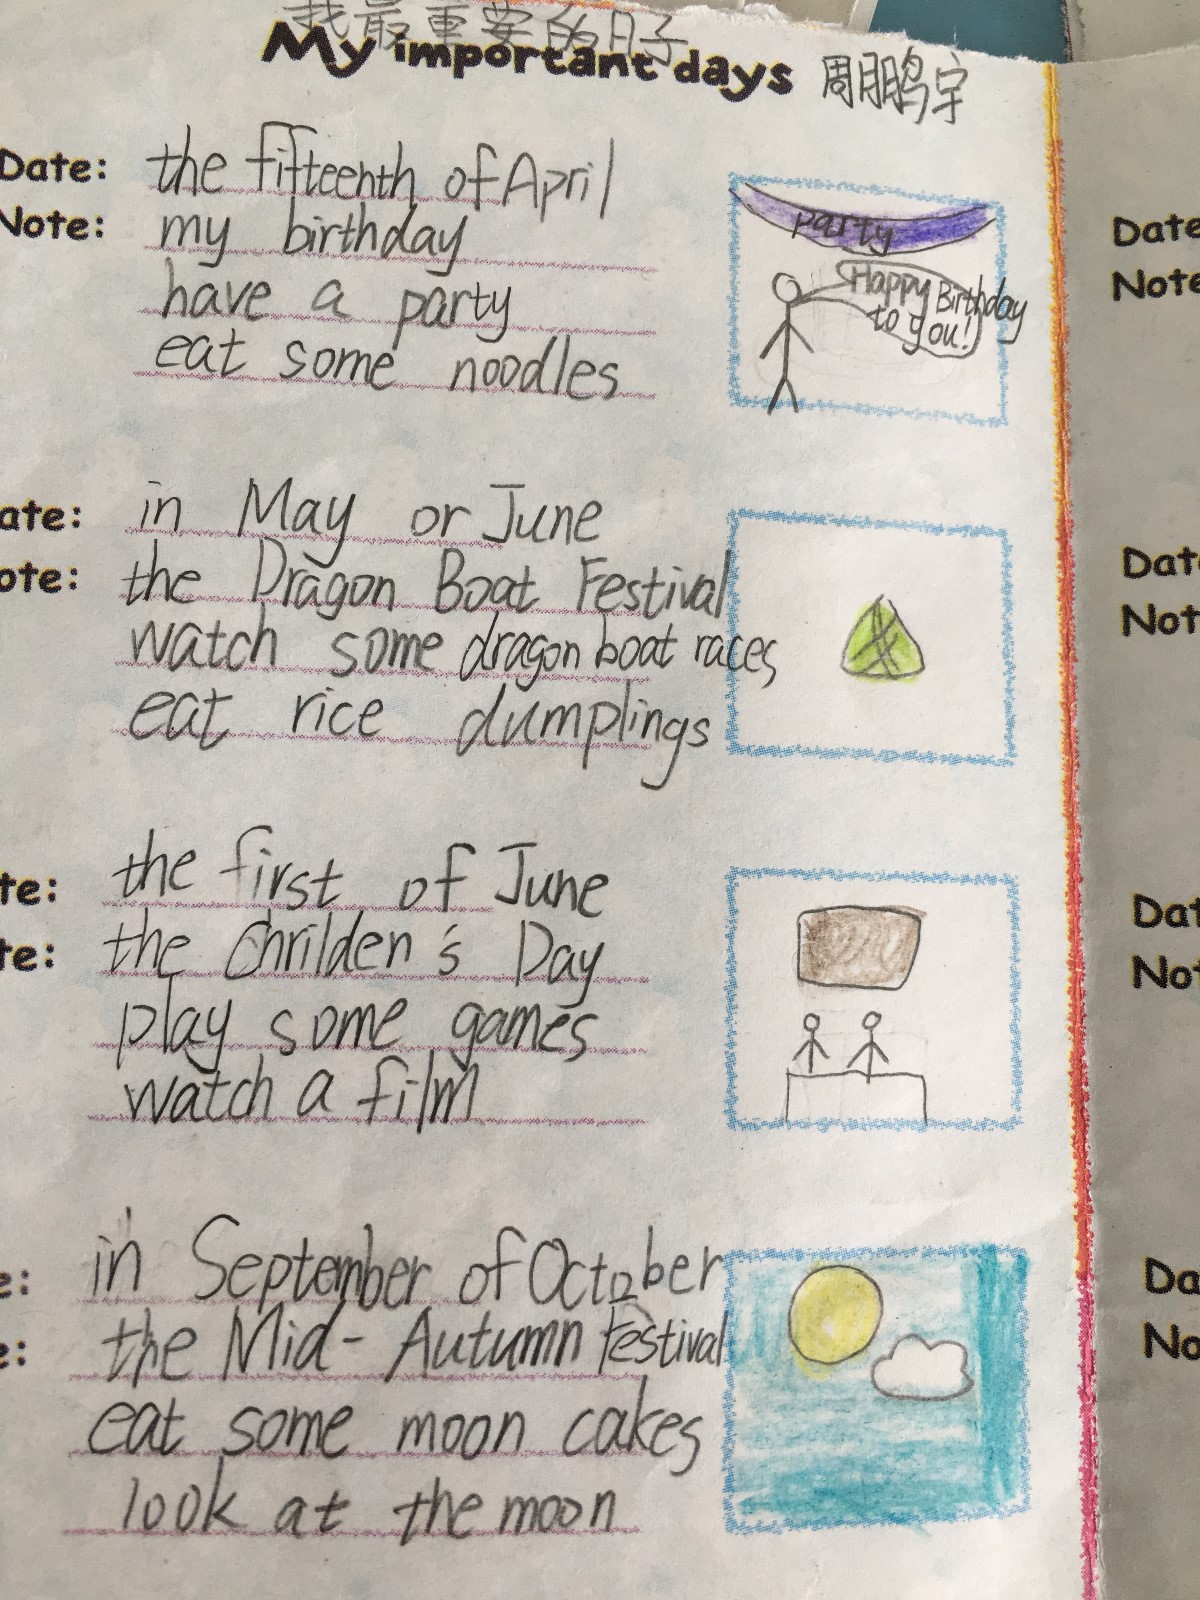 我最重要的日子
My important days 周鹏宇
Date: the fifteenth of April
Note: my birthday
have a party
eat some noodles
party
Happy Birthday
to you!
ate: in May or June
ote: the Dragon Boat Festival
watch some dragon boat races
eat rice dumplings
te: the first of June
te: the Chrilden's Day
play some games
watch a film
e: in September of October
e: the Mid-Autumn Festival
eat some moon cakes
look at the moon
Date
Note
Date
Not
Dat
Not
Da
No